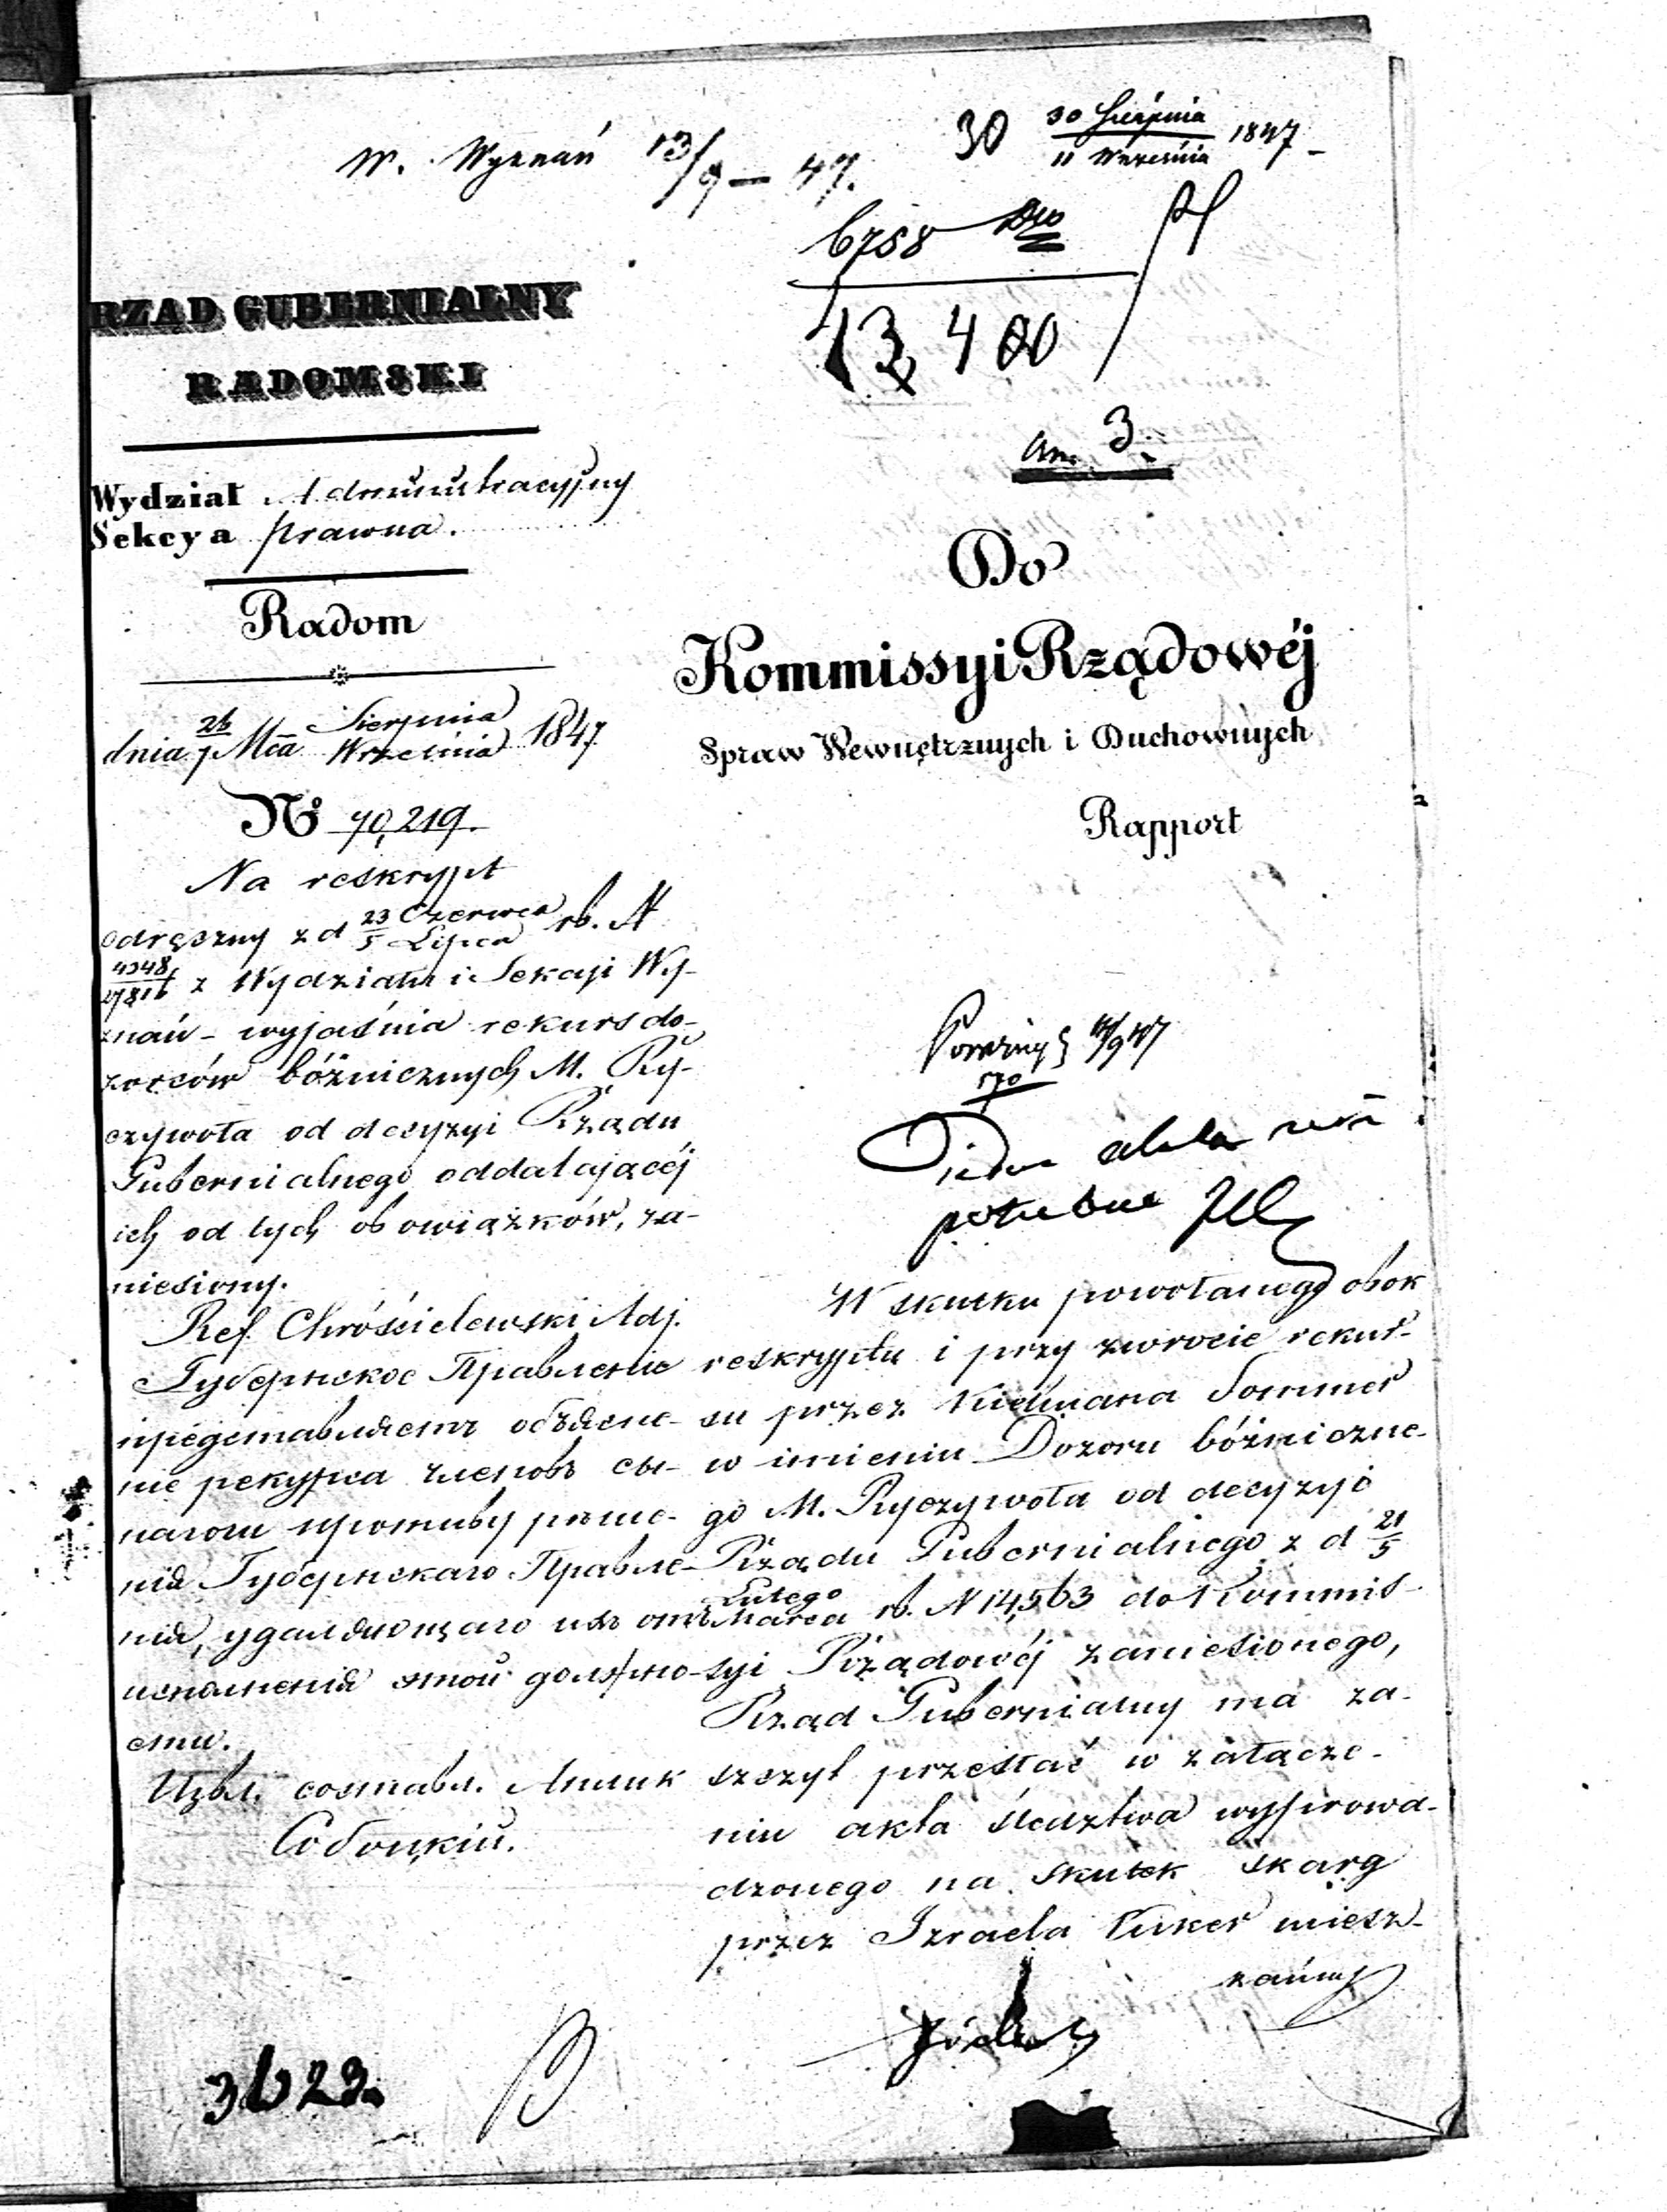 W. Wyznań 13/9 – 47.
30 30 Sierpnia / 11 Września 1847
6758
13 400
an. 3.
RZAD GUBERNIALNY
RADOMSKI
Wydział Administracyjny
Sekcya prawna.
Radom
dnia 26/7 Mca Sierpnia / Września 1847
№ 70,219.
Na reskrypt
odręczny z d 23 Czerwca / 5 Lipca rb. N
z Wydziału i Sekcyi Wy-
znań – wyjaśnia rekurs do-
zorców bóżnicznych M. Ry-
czywoła od decyzyi Rządu
Gubernialnego oddalającéj
ich od tych obowiązków, za-
niesiony.
Ref. Chróścielewski Adj.
Губернское Правленіе
представляетъ объясне-
ніе рекурса членовъ си-
нагоги противу рѣше-
нія Губернскаго Правле-
нія, удаляющаго ихъ отъ
исполненія этой должно-
сти.
Do
Kommissyi Rządowéj
Spraw Wewnętrznych i Duchownych
Rapport
akta
potrzebne
W skutku powołanego obok
reskryptu i przy zwrocie rekur-
su przez Kielmana Sommer
w imieniu Dozoru bóżniczne-
go M. Ryczywoła od decyzyi
Rządu Gubernialnego z d 21/5
Lutego / Marca rb. N 14,563 do Kommis-
syi Rządowéj zaniesionego,
Rząd Gubernialny ma za-
szczyt przesłać w załącze-
niu akta śledztwa wyprowa-
dzonego na skutek skarg
przez Izraela Kuker miesz-
kańca
3623